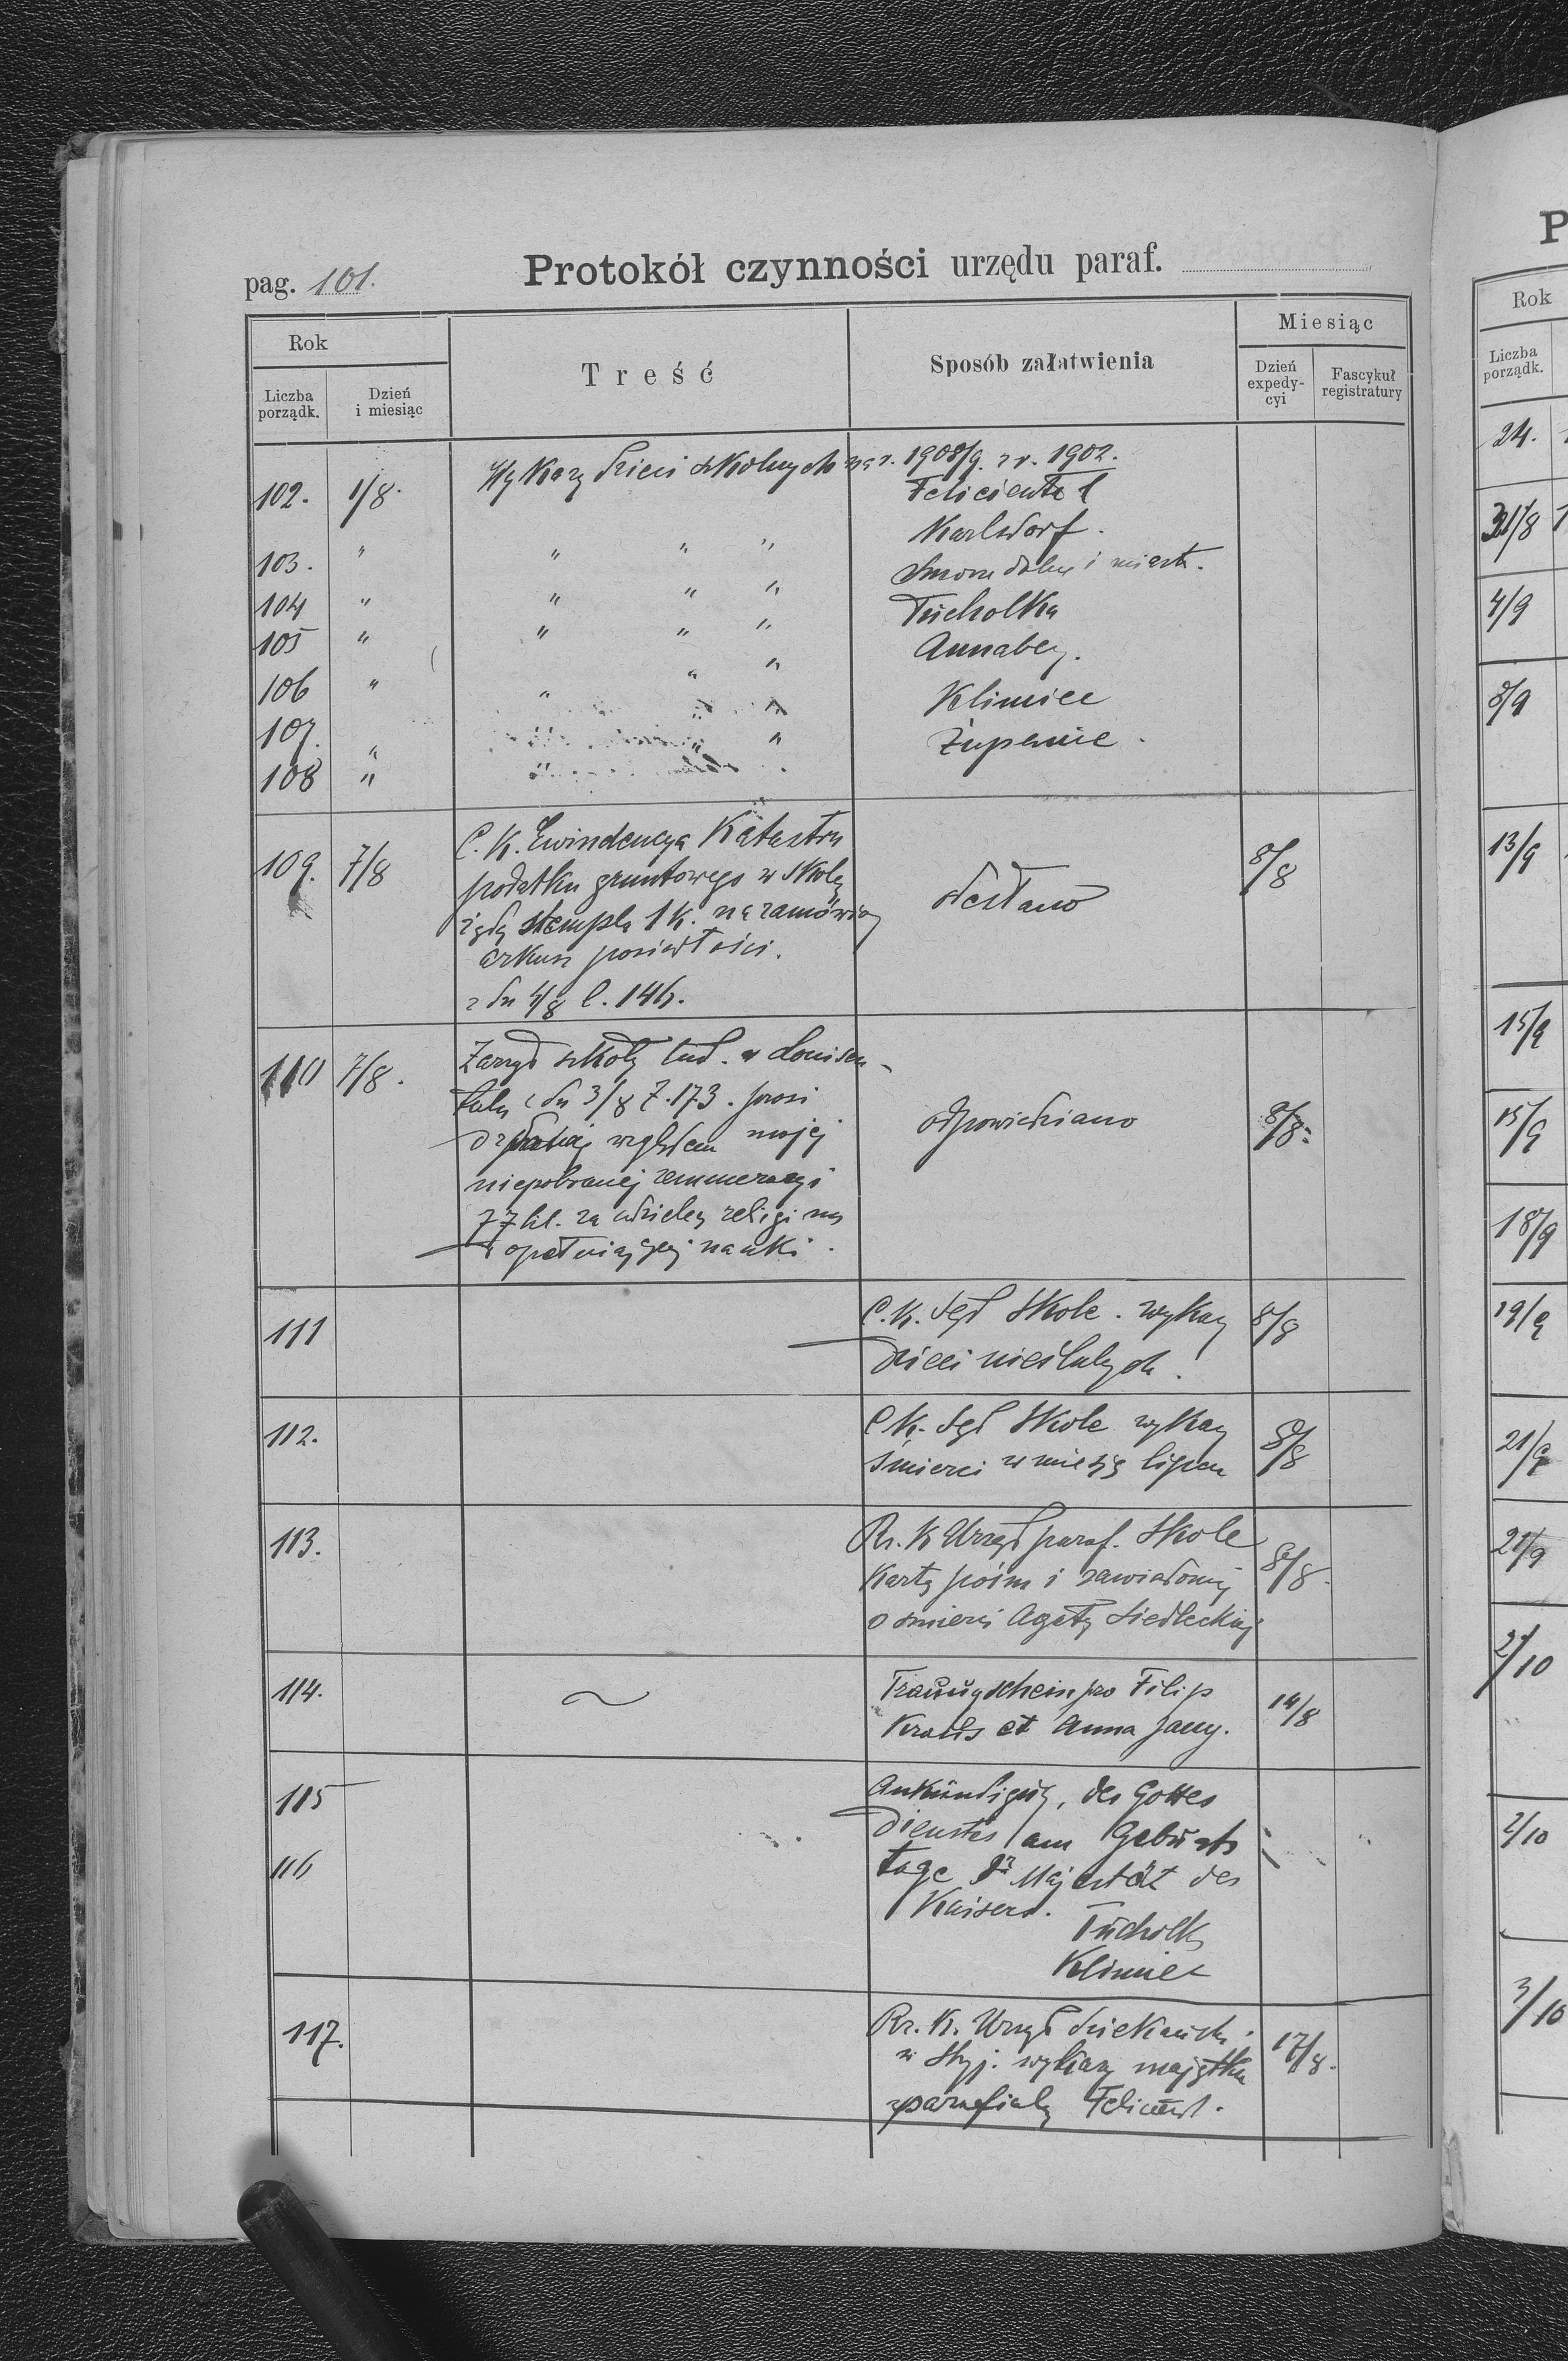 pag. 101.
Protokół czynności urzędu paraf.
Rok
Treść
Sposób załatwienia
Miesiąc
Liczba porządk.
Dzień i miesiąc
Dzień expedy-cyi
Fascykuł registratury
102. 1/8. Wykazy dzieci szkolnych na r. 1908/9. z r. 1902.
Felicienthal
Karlsdorf.
103. " " " "
i miast.
104 " " " "
Tucholka
105 " " " "
Annaberg.
106 " " " "
Klimiec
107. " " " "
Żupanie.
108 " "
109. 7/8 C. K. Ewindencya Katastru
podatku gruntowego w Skolem
żąda stempla 1 K. na zamówiony
arkusz posiadłości.
z dn 4/8 l. 146.
odesłano 8/8
110 7/8. Zarząd szkoły lud. w Louisen-
talu z dn 3/8 Z. 173. prosi
względem mojej
niepobranej remuneracyi
77 hl. za religi
nauki.
odpowiedziano 8/8.
111 C. K. Sąd Skole. wykaz 8/8
dzieci nieślubnych.
112. C. K. Sąd Skole wykaz 8/8
śmierci w miesiąc lipcu
113. Rz. K Urząd paraf. Skole 8/8.
Kartę pośm i zawiadomij
o śmierci Agaty Siedleckiej
114. Trauungschein pro Filip 14/8
Krals et Anna Jany.
115 Ankündigung, des Gottes
dienstes am Geburts
116 tage Sr Majestät des
Kaisers.
Tucholka
Klimiec
117. Rz. K. Urząd dziekański. 17/8.
w Stryj. wykazy majątku
parafialny Felicient.
P
Rok
Liczba porządk.
24.
31/8
4/9
8/9
13/9
15/9
15/9
18/9
19/9
21/9
21/9
2/10
2/10
3/10